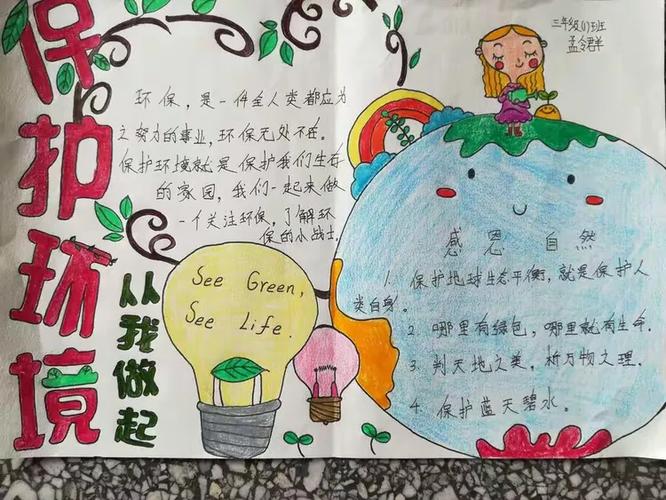 保护环境
从我做起
三年级(1)班
孟令群
环保，是一件全人类都应为
之努力的事业，环保无处不在。
保护环境就是保护我们生存
的家园，我们一起来做
一个关注环保，了解环
保的小战士。
See Green,
See Life.
感恩自然
1. 保护地球生态平衡，就是保护人
类自身。
2. 哪里有绿包，哪里就有生命.
3. 判天地之美，析万物之理.
4. 保护蓝天碧水。